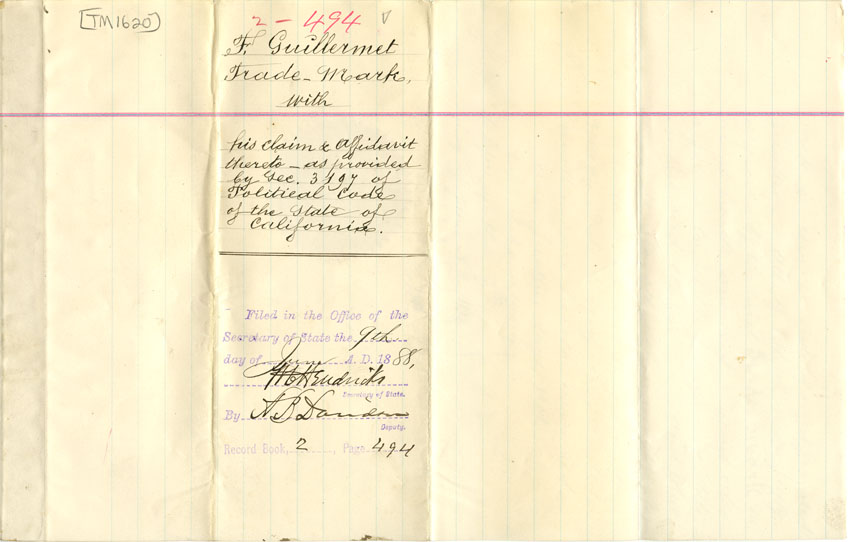 [TM1620]
2-494
F. Guillermet
Trade-Mark,
with
his claim & affidavit
thereto - as provided
by Sec. 3197 of
Political Code
of the State of
California.
Filed in the Office of the
Secretary of State the 9th
day of June A. D. 1888,
W C Hendricks
Secretary of State.
By A B
Deputy.
Record Book, 2, Page 494